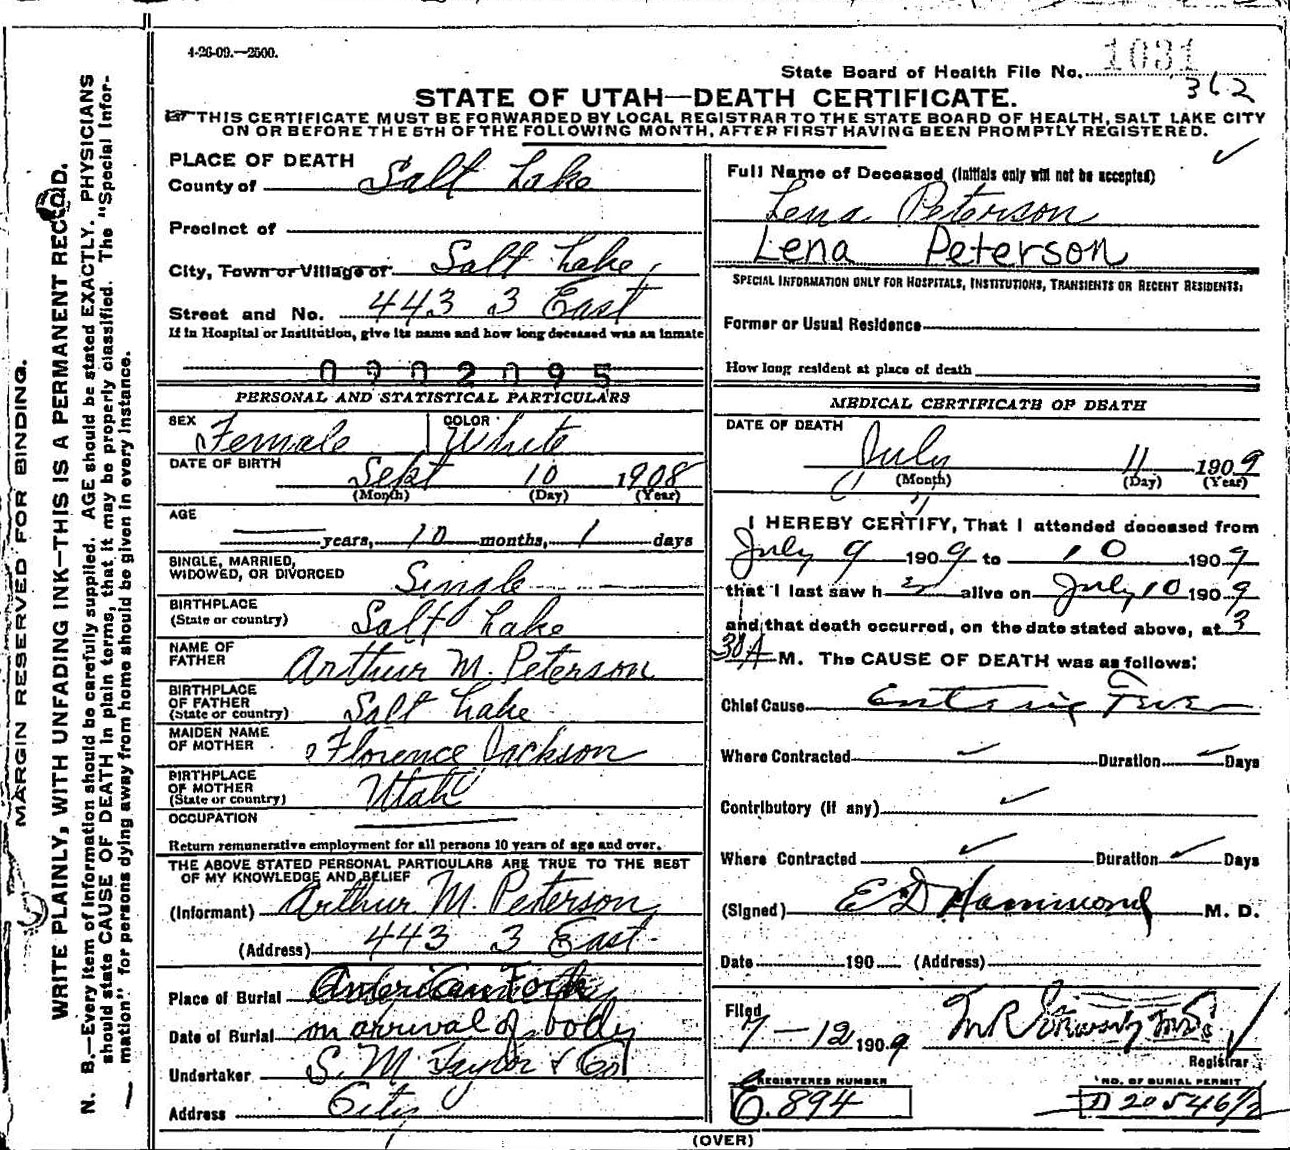 4-26-09.—2500.
State Board of Health File No. 1031
362
STATE OF UTAH—DEATH CERTIFICATE.
THIS CERTIFICATE MUST BE FORWARDED BY LOCAL REGISTRAR TO THE STATE BOARD OF HEALTH, SALT LAKE CITY
ON OR BEFORE THE 5TH OF THE FOLLOWING MONTH, AFTER FIRST HAVING BEEN PROMPTLY REGISTERED.
MARGIN RESERVED FOR BINDING.
WRITE PLAINLY, WITH UNFADING INK—THIS IS A PERMANENT RECORD.
N. B.—Every item of Information should be carefully supplied. AGE should be stated EXACTLY. PHYSICIANS
should state CAUSE OF DEATH in plain terms, that it may be properly classified. The "Special Infor-
mation" for persons dying away from home should be given in every instance.
PLACE OF DEATH
County of Salt Lake
Precinct of
City, Town or Village of Salt Lake,
Street and No. 443 3 East
If in Hospital or Institution, give its name and how long deceased was an inmate
0902095
PERSONAL AND STATISTICAL PARTICULARS
SEX Female COLOR White
DATE OF BIRTH Sept 10 1908
(Month) (Day) (Year)
AGE
years, 10 months, 1 days
SINGLE, MARRIED,
WIDOWED, OR DIVORCED Single
BIRTHPLACE
(State or country) Salt Lake
NAME OF
FATHER Arthur M. Peterson
BIRTHPLACE
OF FATHER
(State or country) Salt Lake
MAIDEN NAME
OF MOTHER Florence Jackson
BIRTHPLACE
OF MOTHER
(State or country) Utah
OCCUPATION
Return remunerative employment for all persons 10 years of age and over.
THE ABOVE STATED PERSONAL PARTICULARS ARE TRUE TO THE BEST
OF MY KNOWLEDGE AND BELIEF
(Informant) Arthur M. Peterson
(Address) 443 3 East
Place of Burial American Fork
Date of Burial on arrival of body
Undertaker S. M. Taylor & Co
Address City
Full Name of Deceased (Initials only will not be accepted)
Lena Peterson
Lena Peterson
SPECIAL INFORMATION ONLY FOR HOSPITALS, INSTITUTIONS, TRANSIENTS OR RECENT RESIDENTS:
Former or Usual Residence
How long resident at place of death
MEDICAL CERTIFICATE OF DEATH
DATE OF DEATH
July 11 1909
(Month) (Day) (Year)
I HEREBY CERTIFY, That I attended deceased from
July 9 1909 to 10 1909
that I last saw h alive on July 10 1909
and that death occurred, on the date stated above, at 3
30 A M. The CAUSE OF DEATH was as follows:
Chief Cause Enteric Fever
Where Contracted Duration Days
Contributory (if any)
Where Contracted Duration Days
(Signed) E D Hammond M. D.
Date 190 (Address)
Filed
7-12 1909 M R
Registrar
REGISTERED NUMBER
C.894
NO. OF BURIAL PERMIT
D 20546 1/2
(OVER)